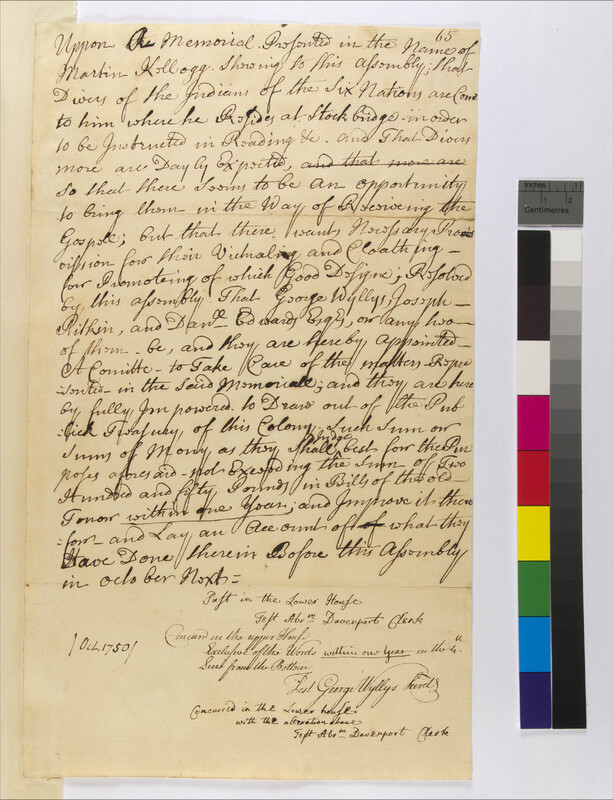 65
Uppon A Memorial Presented in the Name of
Martin Kellogg. Shewing to this Assembly; that
Divers of the Indians of the Six Nations are Come
to him where he Resides at Stockbridge in order
to be Instructed in Reading &c. and That Divers
more are Dayly Expected, and that more are
So that there Seems to be an opportunity
to bring them in the Way of Receiveing the
Gospell; but that there wants Necessary Prov
vission for their Victualing and Cloathing -
for Promoteing of which Good Designe; Resolved
by this assembly That George Wyllys Joseph -
Pitkin, and Danll. Edwards Esqrs, or any two -
of them - be, and they are hereby appointed -
A Comitte - to Take Care of the matters Repre
=sented - in the Said Memoriall; and they are here
by fully Impowred to Draw out of the Pub
lick Treasury of this Colony Such Sum or
Sums of Mony as they Shall Judge best for the Pur
poses aforesaid - not Exceeding the Sum of Two
Hundred and fifty Pounds in Bills of the old -
Tenor within one Year; and Improve it there
=for - and Lay an Account of of what they
Have Done therein Before this Assembly
in october Next =
Past in the Lower House
Test Abrm Davenport Clerk
/Oct. 1750/
Concurd in the upper House
Exclusive of the Words within one Year in the 4th
Line from the Bottom
Test George Wyllys Secretr
Concurred in the Lower house
with the alteration above
Test Abrm Davenport Clerk
Inches 1
1 2
Centimetres